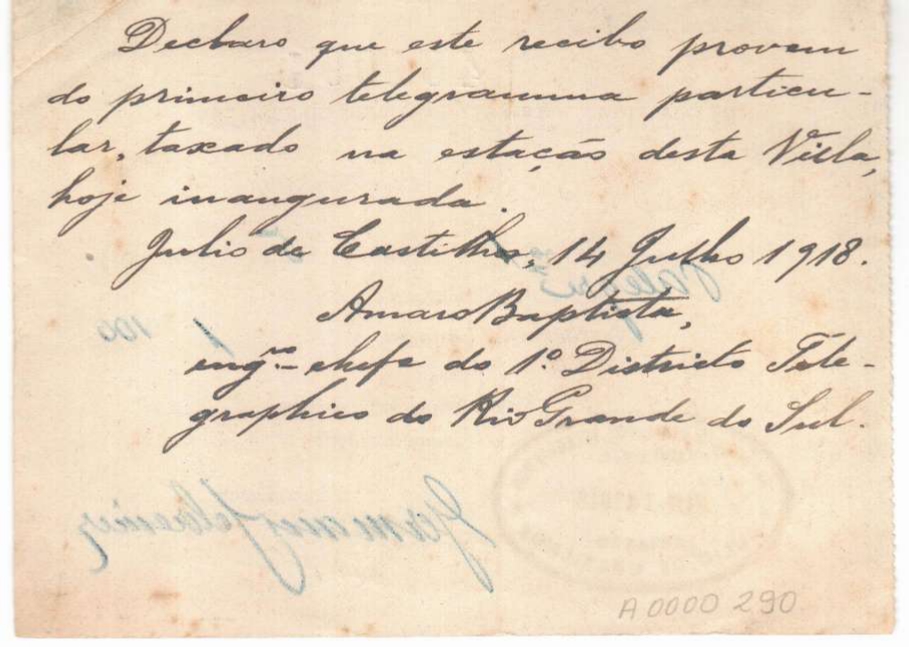 Declaro que este recibo provem
do primeiro telegramma particu-
lar, taxado na estação desta Villa,
hoje inaugurada.
Julio de Castilhos, 14 Julho 1918.
Amaro Baptista,
engro- chefe do 1º. Districto Tele-
graphico do Rio Grande do Sul.
100
A0000 290